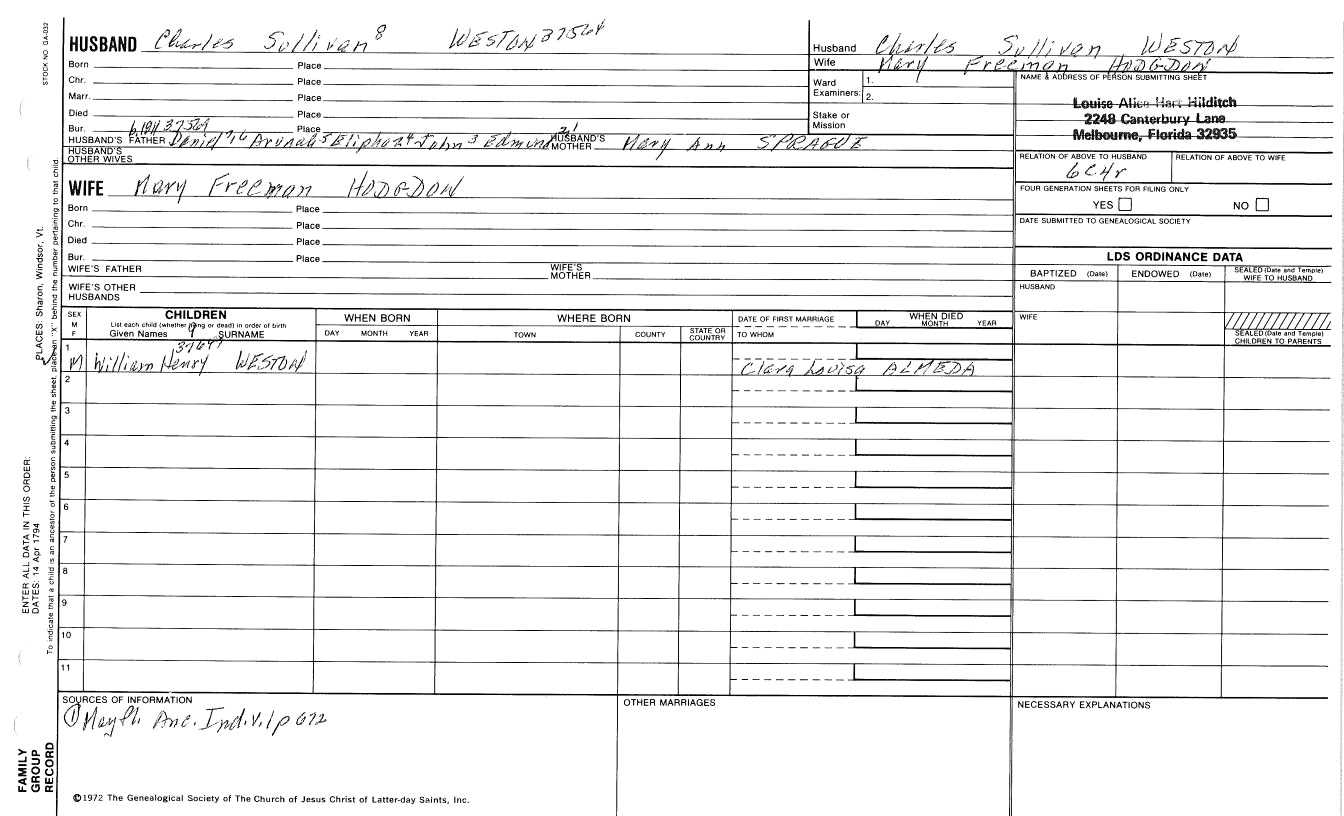 STOCK NO. GA-032
HUSBAND Charles Sullivan 8 WESTON 37564
Born Place
Chr. Place
Marr. Place
Died Place
Bur. Place
HUSBAND'S FATHER Daniel 7,6 5 Eliphaz 4 John 3 Edmund 2,1 HUSBAND'S MOTHER Mary Ann SPRAGUE
HUSBAND'S OTHER WIVES
Husband Charles Sullivan WESTON
Wife Mary Freeman HODGDON
Ward 1.
Examiners: 2.
Stake or
Mission
NAME & ADDRESS OF PERSON SUBMITTING SHEET
Louise Alice Hart Hilditch
2248 Canterbury Lane
Melbourne, Florida 32935
RELATION OF ABOVE TO HUSBAND RELATION OF ABOVE TO WIFE
6C4r
FOUR GENERATION SHEETS FOR FILING ONLY
YES NO
DATE SUBMITTED TO GENEALOGICAL SOCIETY
WIFE Mary Freeman HODGDON
Born Place
Chr. Place
Died Place
Bur. Place
WIFE'S FATHER WIFE'S MOTHER
WIFE'S OTHER
HUSBANDS
LDS ORDINANCE DATA
BAPTIZED (Date) ENDOWED (Date) SEALED (Date and Temple) WIFE TO HUSBAND
HUSBAND
WIFE
SEALED (Date and Temple) CHILDREN TO PARENTS
SEX M F
CHILDREN
List each child (whether living or dead) in order of birth
Given Names SURNAME
WHEN BORN
DAY MONTH YEAR
WHERE BORN
TOWN COUNTY STATE OR COUNTRY
DATE OF FIRST MARRIAGE
TO WHOM
WHEN DIED
DAY MONTH YEAR
1
M William Henry 9 WESTON Clara Louisa ALMEDA
2
3
4
5
6
7
8
9
10
11
SOURCES OF INFORMATION
① Mayfl. Anc. Ind. V.1 p 672
OTHER MARRIAGES
NECESSARY EXPLANATIONS
©1972 The Genealogical Society of The Church of Jesus Christ of Latter-day Saints, Inc.
FAMILY
GROUP
RECORD
ENTER ALL DATA IN THIS ORDER:
DATES: 14 Apr 1794
PLACES: Sharon, Windsor, Vt.
To indicate that a child is an ancestor of the person submitting the sheet, place an "X" behind the number pertaining to that child